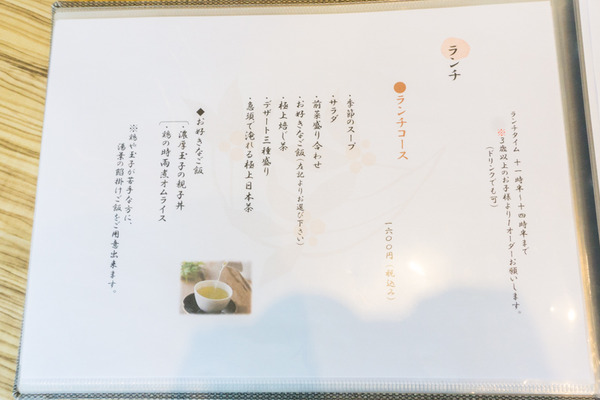 ランチ
ランチタイム 十一時半〜十四時半まで
※3歳以上のお子様より1オーダーお願いします。
(ドリンクでも可)
●ランチコース
一六〇〇円(税込み)
・季節のスープ
・サラダ
・前菜盛り合わせ
・お好きなご飯(左記よりお選び下さい)
・極上焙じ茶
・デザート三種盛り
・急須で淹れる極上日本茶
◆お好きなご飯
・濃厚玉子の親子丼
・鶏の時雨煮オムライス
※鶏や玉子が苦手な方に、
湯葉の餡掛けご飯をご用意出来ます。